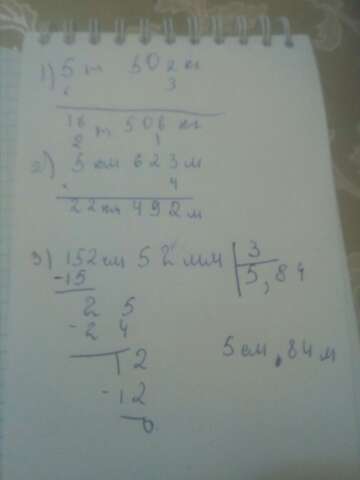 1) 5 т 502 кг
× 3
16 т 506 кг
2 1
2) 5 км 623 м
× 4
22 км 492 м
3) 152 см 52 мм | 3
-15 5,84
2 5
-2 4
12
-12
0
5 см, 84 м